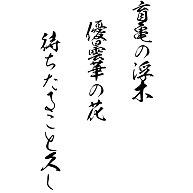 盲亀の浮木
優曇華の花
待ちたること久し